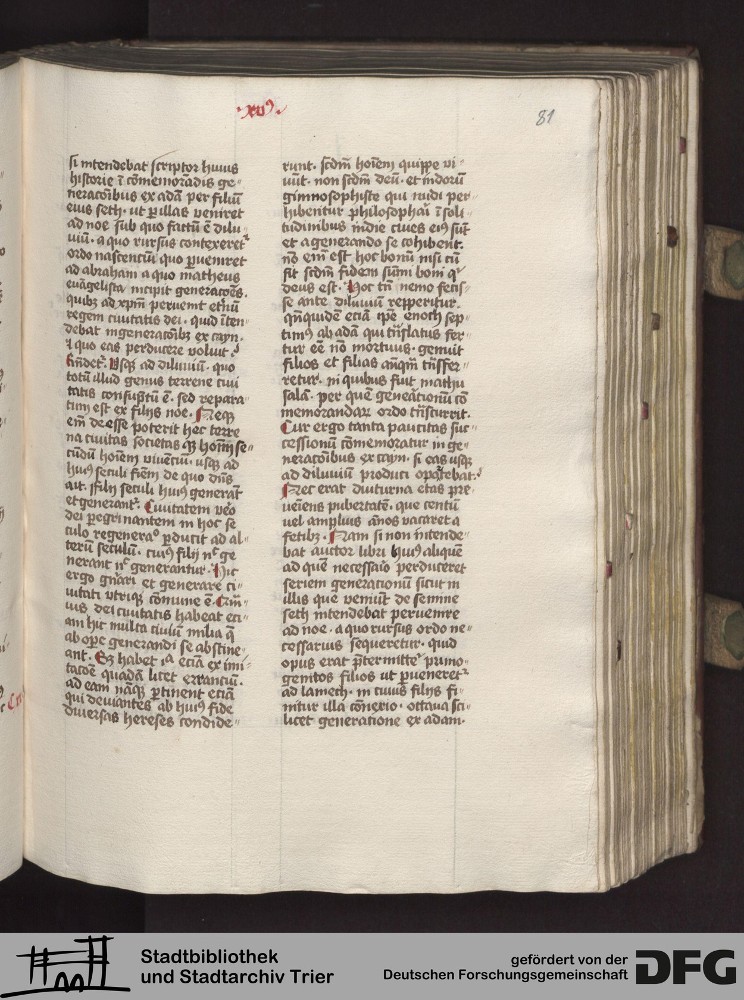 ·xv⁹·
81
si intendebat scriptor huius
historie ī cōmemorādis ge〃
neracōibus ex adā per filiū
eius seth · ut ꝑ illas veniret
ad noe sub quo factū ē dilu〃
uiū · a quo rursus contexeret᷑
ordo nascentiū quo ꝑueniret
ad abraham a quo matheus
evāgelista incipit generacōes ·
quibꝫ ad xpm̄ peruenit et̄nū
regem ciuitatis dei · quid īten〃
debat in generacōibꝫ ex cayn ·
⁊ quo eas perducere voluit ·
Rn̄det᷑ · Vsqꝫ ad diluuiū · quo
totū illud genus terrene ciui
tatis consūptū ē · sed repara〃
tum est ex filijs noe · Neqꝫ
em̄ deesse poterit hec terre
na ciuitas societas qꝫ hoīm se〃
cūdū hoīem viuenciū · vsqꝫ ad
huiꝰ seculi finēm de quo dn̄s
ait · Filij seculi huiꝰ generāt
et generant᷑ · Ciuitatem v̄o
dei pegrinantem in hoc se
culo regeneraᵒ ꝑducit ad al〃
terū seculū · cuiꝰ filij nᶜ ge
nerant nᶜ generantur · Hic
ergo gn̄ari et generare ci〃
uitati vtriqꝫ cōmune ē · Q̄m̄
uis dei ciuitatis habeat eci〃
am hic multa ciuiū milia q̄
ab oꝑe generandi se abstine〃
ant · Sꝫ habet iᵃ eciā ex imi〃
tacōe quadā licet erranciū ·
ad eam nāqꝫ ꝑtinent eciā
qui deuiantes ab huiꝰ fide
diuersas hereses condide〃
runt · scdm̄ hoīem quippe vi〃
uūt · non scdm̄ deū · et indorū
gimnosophiste qui nudi per〃
hibentur philosophari ī soli〃
tudinibus indie ciues eiꝰ sūt
et a generando se cohibent ·
nō em̄ est hoc bonū nisi cū
fit scdm̄ fidem sūmi boni qⁱ
deus est · Hoc tn̄ nemo fecis〃
se ante diluuiū repperitur ·
qn̄quidē eciā ip̄e enoch sep〃
timꝰ ab adā qui tn̄slatus fer〃
tur eē nō mortuus · genuit
filios et filias anq̄m tn̄sfer〃
retur · in quibus fuit mathu
salā · per quē generationū cō
memorandaꝝ ordo tn̄scurrit ·
Cur ergo tanta paucitas suc〃
cessionū cōmemoratur in ge〃
neracōibus ex cayn · si eas usqꝫ
ad diluuiū produci oportebat ·
Nec erat diuturna etas pre〃
veniens pubertatē · que centū
vel amplius ānos vacaret a
fetibꝫ · Nam si non intende〃
bat auctor libri huiꝰ aliquē
ad quē necessaīo perduceret
seriem generationū sicut in
illis que veniūt de semine
seth intendebat peruenire
ad noe · a quo rursus ordo ne〃
cessarius sequeretur · quid
opus erat p̄termitte᷑ primo〃
genitos filios ut ꝑueneret᷑
ad lamech · in cuius filijs fi〃
nitur illa cōnexio · ottaua sci〃
licet generatione ex adam ·
Stadtbibliothek
und Stadtarchiv Trier
gefördert von der
Deutschen Forschungsgemeinschaft
DFG